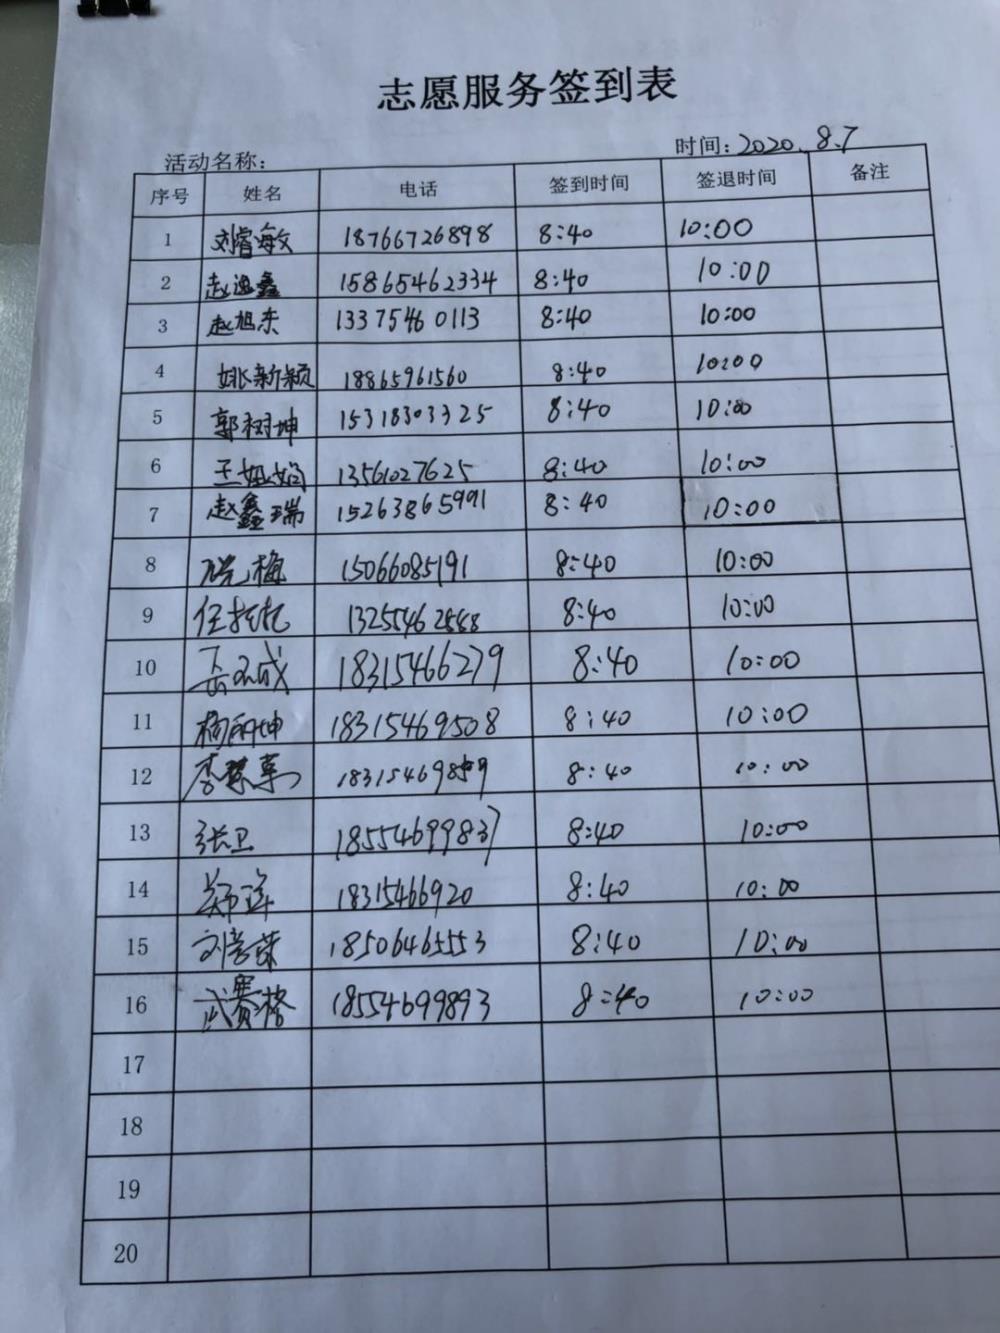 志愿服务签到表
活动名称: 时间: 2020.8.7
序号 姓名 电话 签到时间 签退时间 备注
1 刘睿敏 18766726898 8:40 10:00
2 赵逸鑫 15865462334 8:40 10:00
3 赵旭东 13375460113 8:40 10:00
4 姚新颖 18865961560 8:40 10:00
5 郭树坤 15318303325 8:40 10:00
6 王姐 13561027625 8:40 10:00
7 赵鑫瑞 15263865991 8:40 10:00
8 梅 15066085191 8:40 10:00
9 任 8:40 10:00
10 岳 成 18315466279 8:40 10:00
11 杨 坤 18315469508 8:40 10:00
12 李 8:40 10:00
13 张卫 18554699837 8:40 10:00
14 郑 18315466920 8:40 10:00
15 刘 荣 18506465553 8:40 10:00
16 武赛格 18554699893 8:40 10:00
17
18
19
20